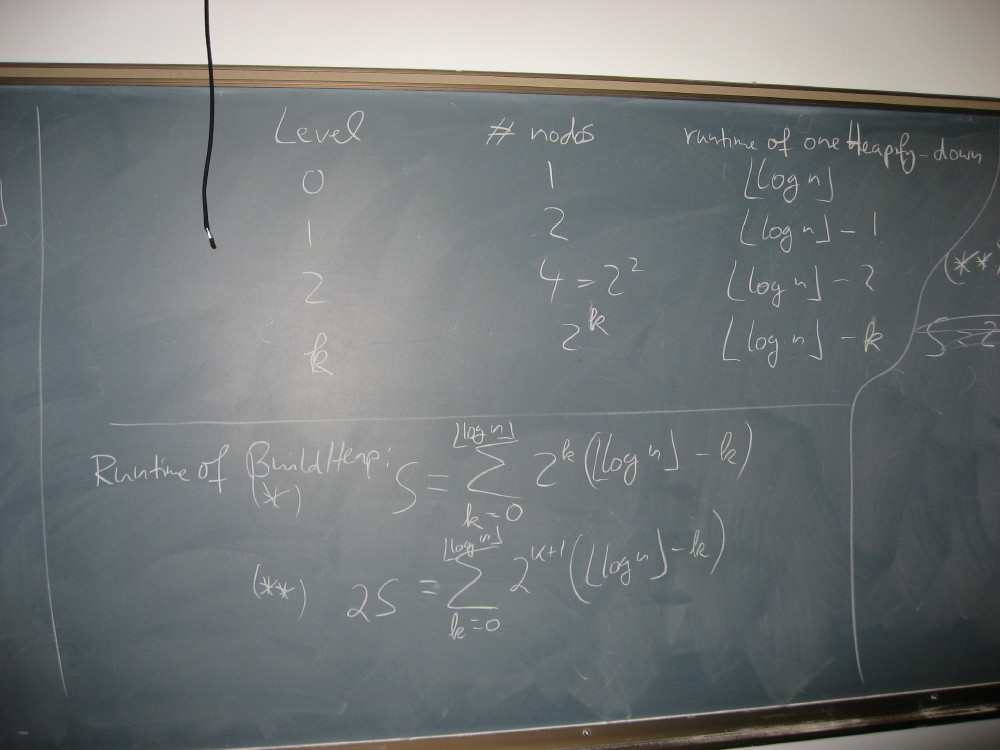 Level # nodes runtime of one Heapify-down
0 1 ⌊log n⌋
1 2 ⌊log n⌋ - 1
2 4 = 2² ⌊log n⌋ - 2
k 2^k ⌊log n⌋ - k
(**)
Runtime of BuildHeap: S = ∑_{k=0}^{⌊log n⌋} 2^k (⌊log n⌋ - k)
(*)
(**) 2S = ∑_{k=0}^{⌊log n⌋} 2^{k+1} (⌊log n⌋ - k)